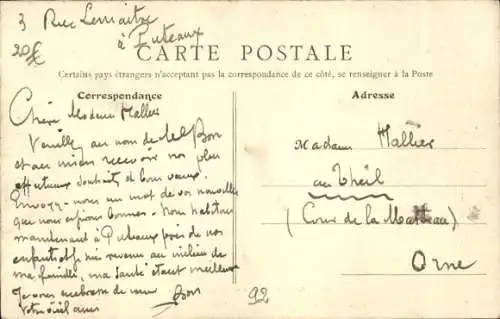 3 Rue Lemaitre
à Puteaux
20 f
CARTE POSTALE
Certains pays étrangers n'acceptant pas la correspondance de ce côté, se renseigner à la Poste
Correspondance
Adresse
Chère Madame Hallier
Veuillez au nom de Bon
et au mien recevoir nos plus
affectueux souhaits et bons voeux.
Envoyez-nous un mot de vos nouvelles
que nous espérons bonnes. Nous habitons
maintenant à Puteaux près de nos
enfants et je suis revenu au milieu de
ma famille, ma santé étant meilleure
Je vous embrasse de
votre vieil ami Bon
Madame Hallier
au Theil
(Cour de la)
Orne
92